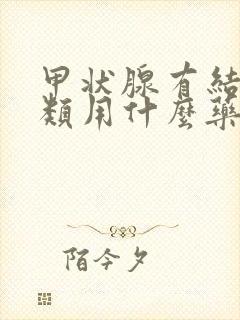 甲状腺有結
類用什麼藥
陌今夕